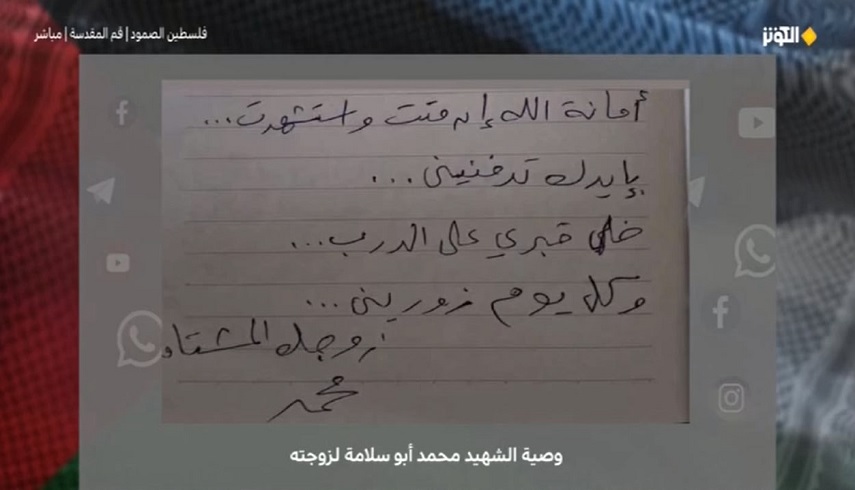 الكوثر
فلسطين الصمود | قم المقدسة | مباشر
أمانة الله إن متت واستشهدت...
بإيدك تدفنيني...
خلي قبري على الدرب...
وكل يوم زوريني...
زوجك المشتاق
محمد
وصية الشهيد محمد أبو سلامة لزوجته